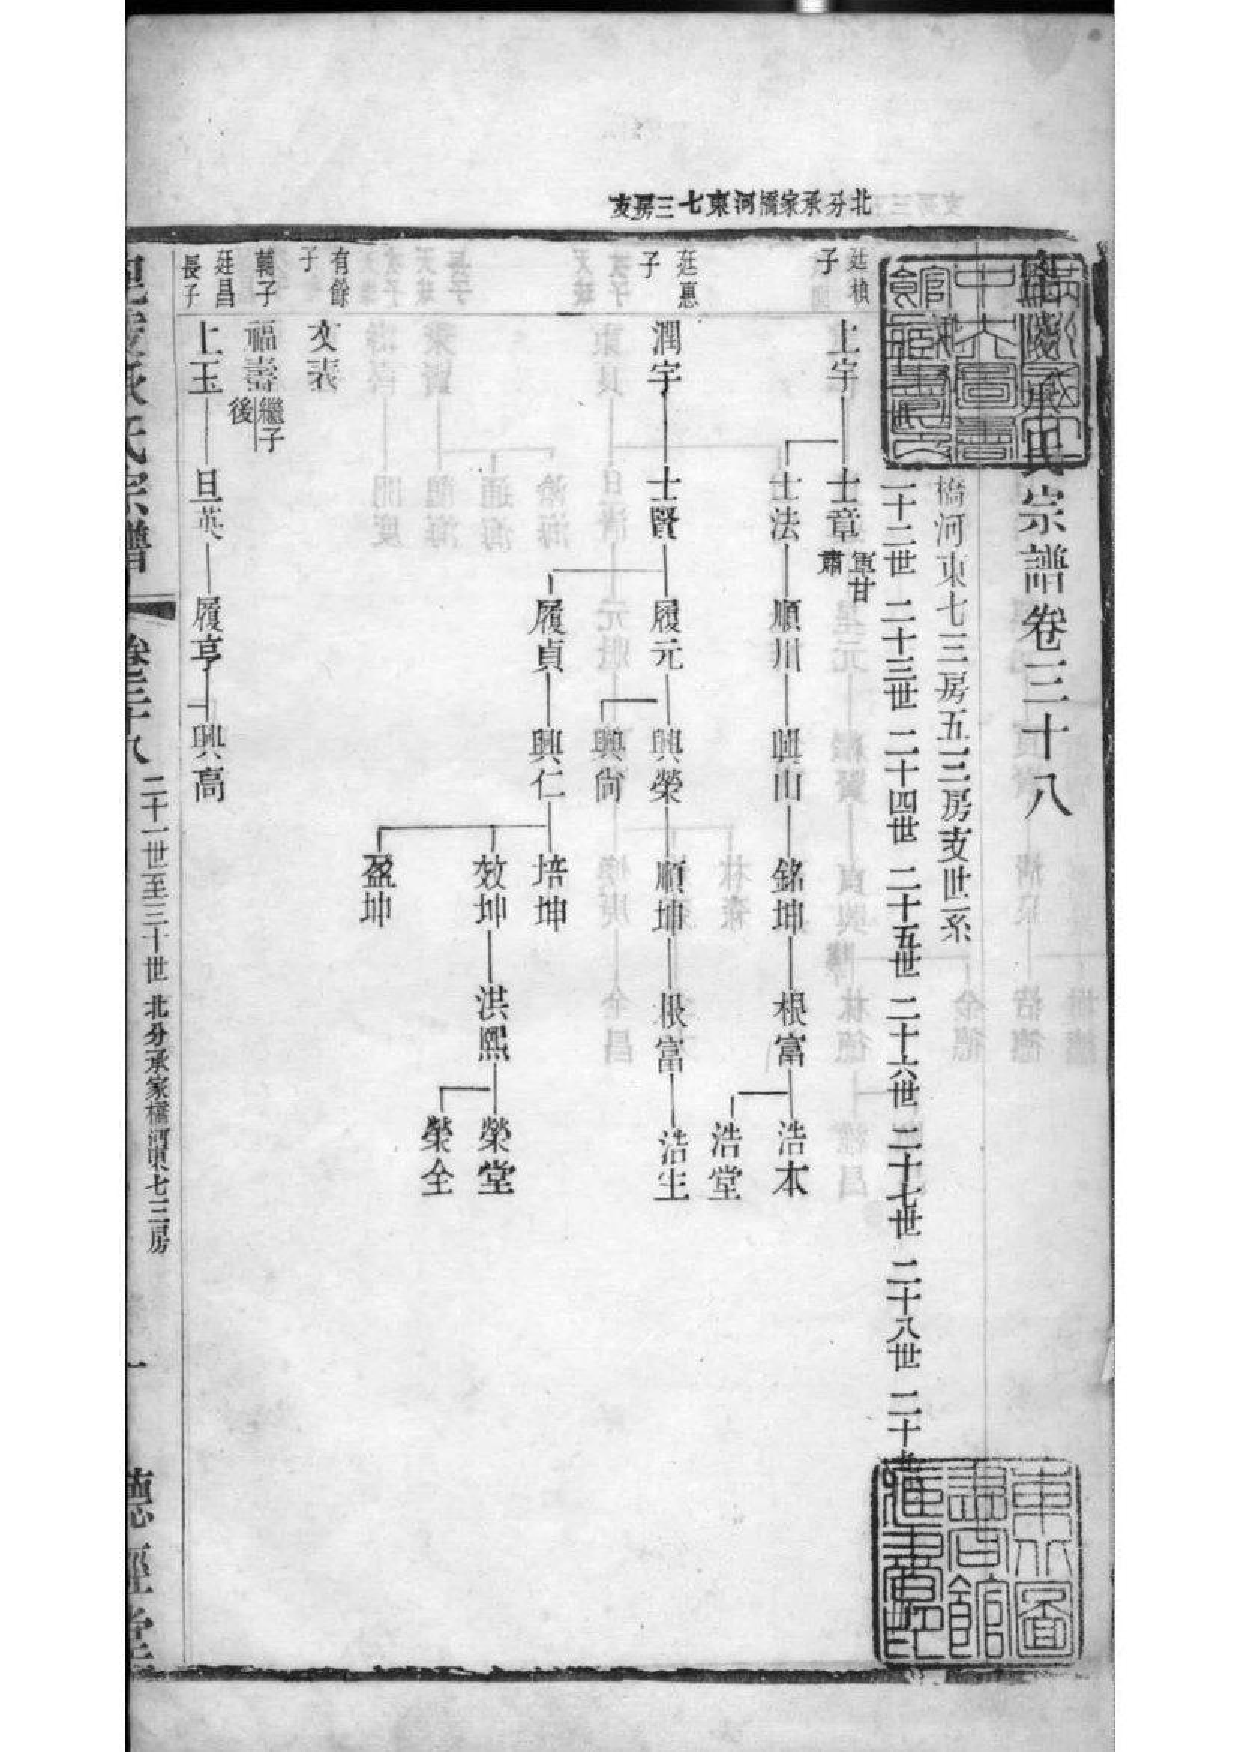 北分承家橋河東七三房支
氏宗譜卷三十八
橋河東七三房五三房支世系
二十二世 二十三世 二十四世 二十五世 二十六世 二十七世 二十八世 二十九
廷楨子
上宇 士章 軍甘肅
士法 順川 興山 銘坤 根富 浩本
浩堂
廷惠子
潤宇 士賢 履元 興榮 順坤 根富 浩生
興尙
履貞 興仁 培坤
效坤 洪熙 榮堂
榮全
盈坤
有餘子
文表
輔子
福壽 繼子後
廷昌長子
上玉 旦英 履亨 興高
氏宗譜 卷三十八 二十一世至三十世 北分承家橋河東七三房 一